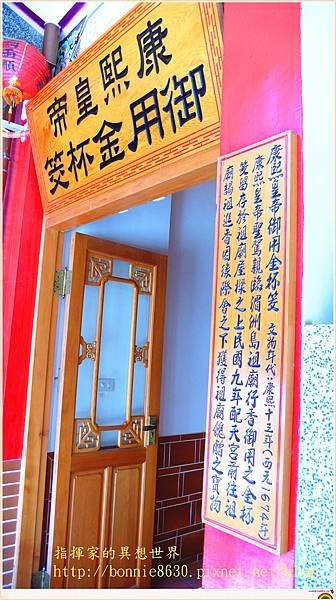 康熙皇帝
御用金杯筊
康熙皇帝御用金杯筊 文物年代：康熙十三年(西元1674年)
康熙皇帝聖駕親臨湄洲島祖廟行香御用之金杯
筊留存於祖廟屋樑之上民國九年配天宮前往祖
廟謁祖進香因緣際會之下獲得祖廟餽贈之寶物
指揮家的異想世界
http://bonnie8630.pixnet.net/blog